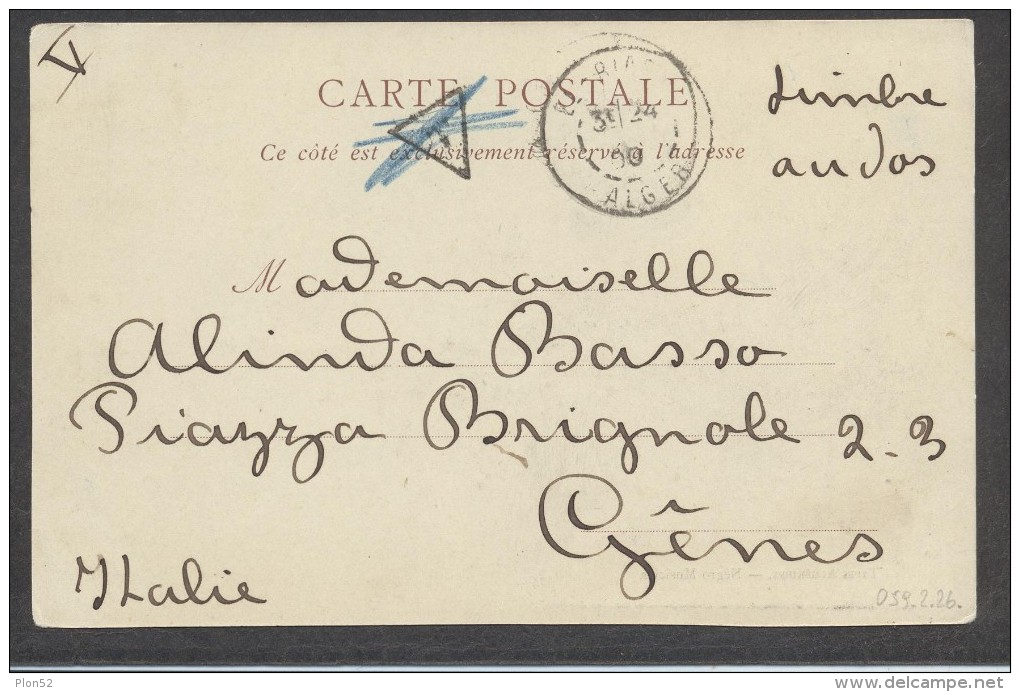 CARTE POSTALE
Ce côté est exclusivement réservé à l'adresse
T
ALGER
timbre
au dos
Mademoiselle
Alinda Basso
Piazza Brignole 2-3
Gênes
Italie
059.2.26.
Plon52
delcampe.net